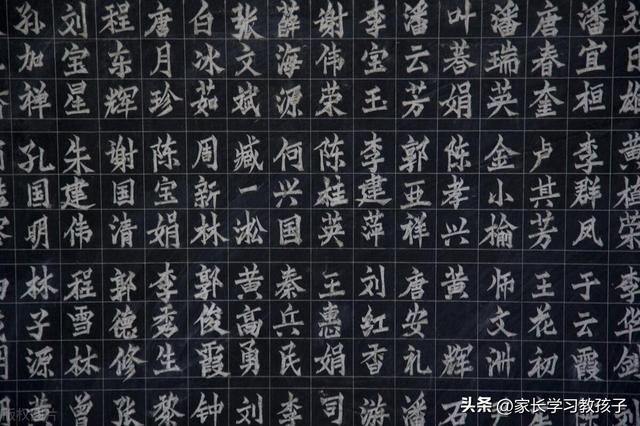 孙加祥
刘宝星
程东辉
唐月珍
白冰茹
张文斌
薛海源
谢伟荣
李宝玉
潘云芳
叶若娟
潘瑞英
唐春奎
潘宜桓
孔国明
朱建伟
谢国清
陈宝娟
周新林
臧一淞
何兴国
陈桂英
李建萍
郭亚祥
陈孝兴
金小榆
卢其芳
李群凤
林子源
程雪林
郭德修
李秀生
郭俊霞
黄高勇
秦兵民
王惠娟
刘红香
唐安礼
黄辉
师文洲
王花初
于云霞
曾
张
黎
钟
刘
李
司
游
潘
石
头条 @家长学习教孩子